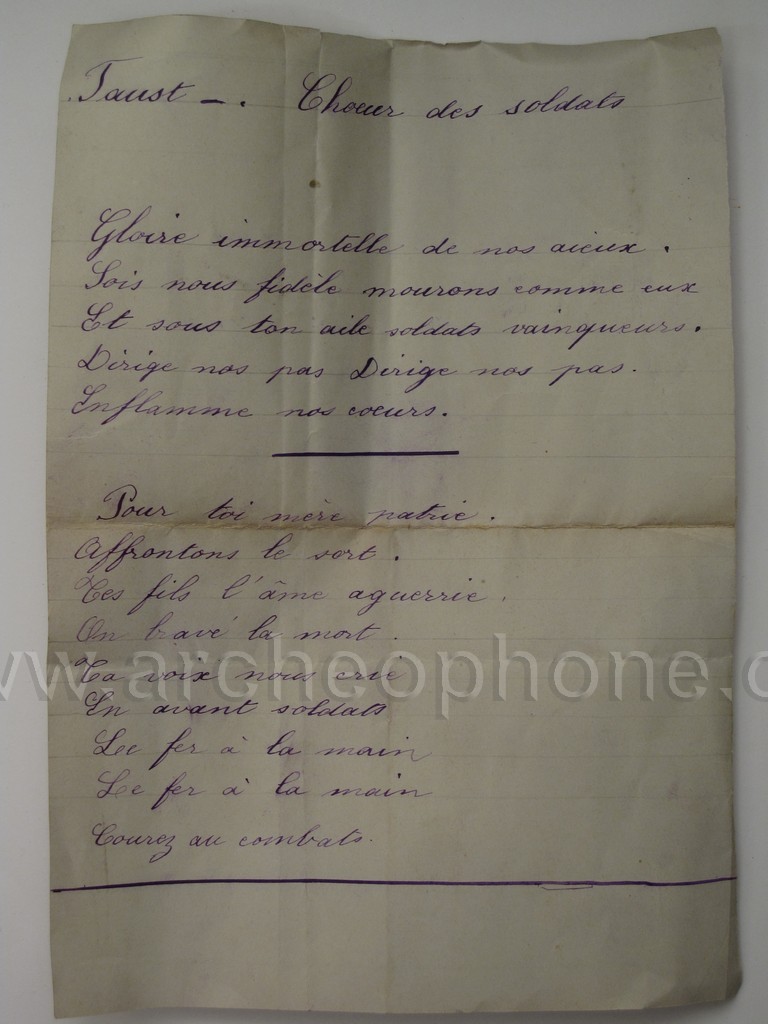 Faust -. Choeur des soldats
Gloire immortelle de nos aieux.
Sois nous fidèle mourons comme eux
Et sous ton aile soldats vainqueurs.
Dirige nos pas Dirige nos pas.
Enflamme nos coeurs.
Pour toi mère patrie.
Affrontons le sort.
Tes fils l'âme aguerrie.
On bravé la mort.
Ta voix nous crie
En avant soldats
Le fer à la main
Le fer à la main
Courez au combats.
www.archeophone.